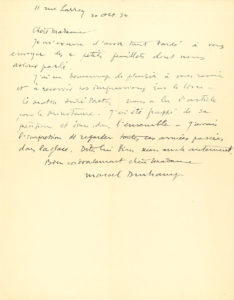 11 rue Larrey
20 oct 34
Chère Madame
Je m'excuse d'avoir tant tardé à vous
envoyer les 2 petits feuillets dont nous
avions parlé.
J'ai eu beaucoup de plaisir à vous revoir
et à recevoir vos impressions sur le livre -
matin André Breton, nous a lu l'article
pour le Minotaure. J'ai été frappé de sa
et de l'ensemble - J'avais
l'impression de regarder toutes ces années passées
dans la glace. Dites lui bien
Bien cordialement chère Madame
Marcel Duchamp